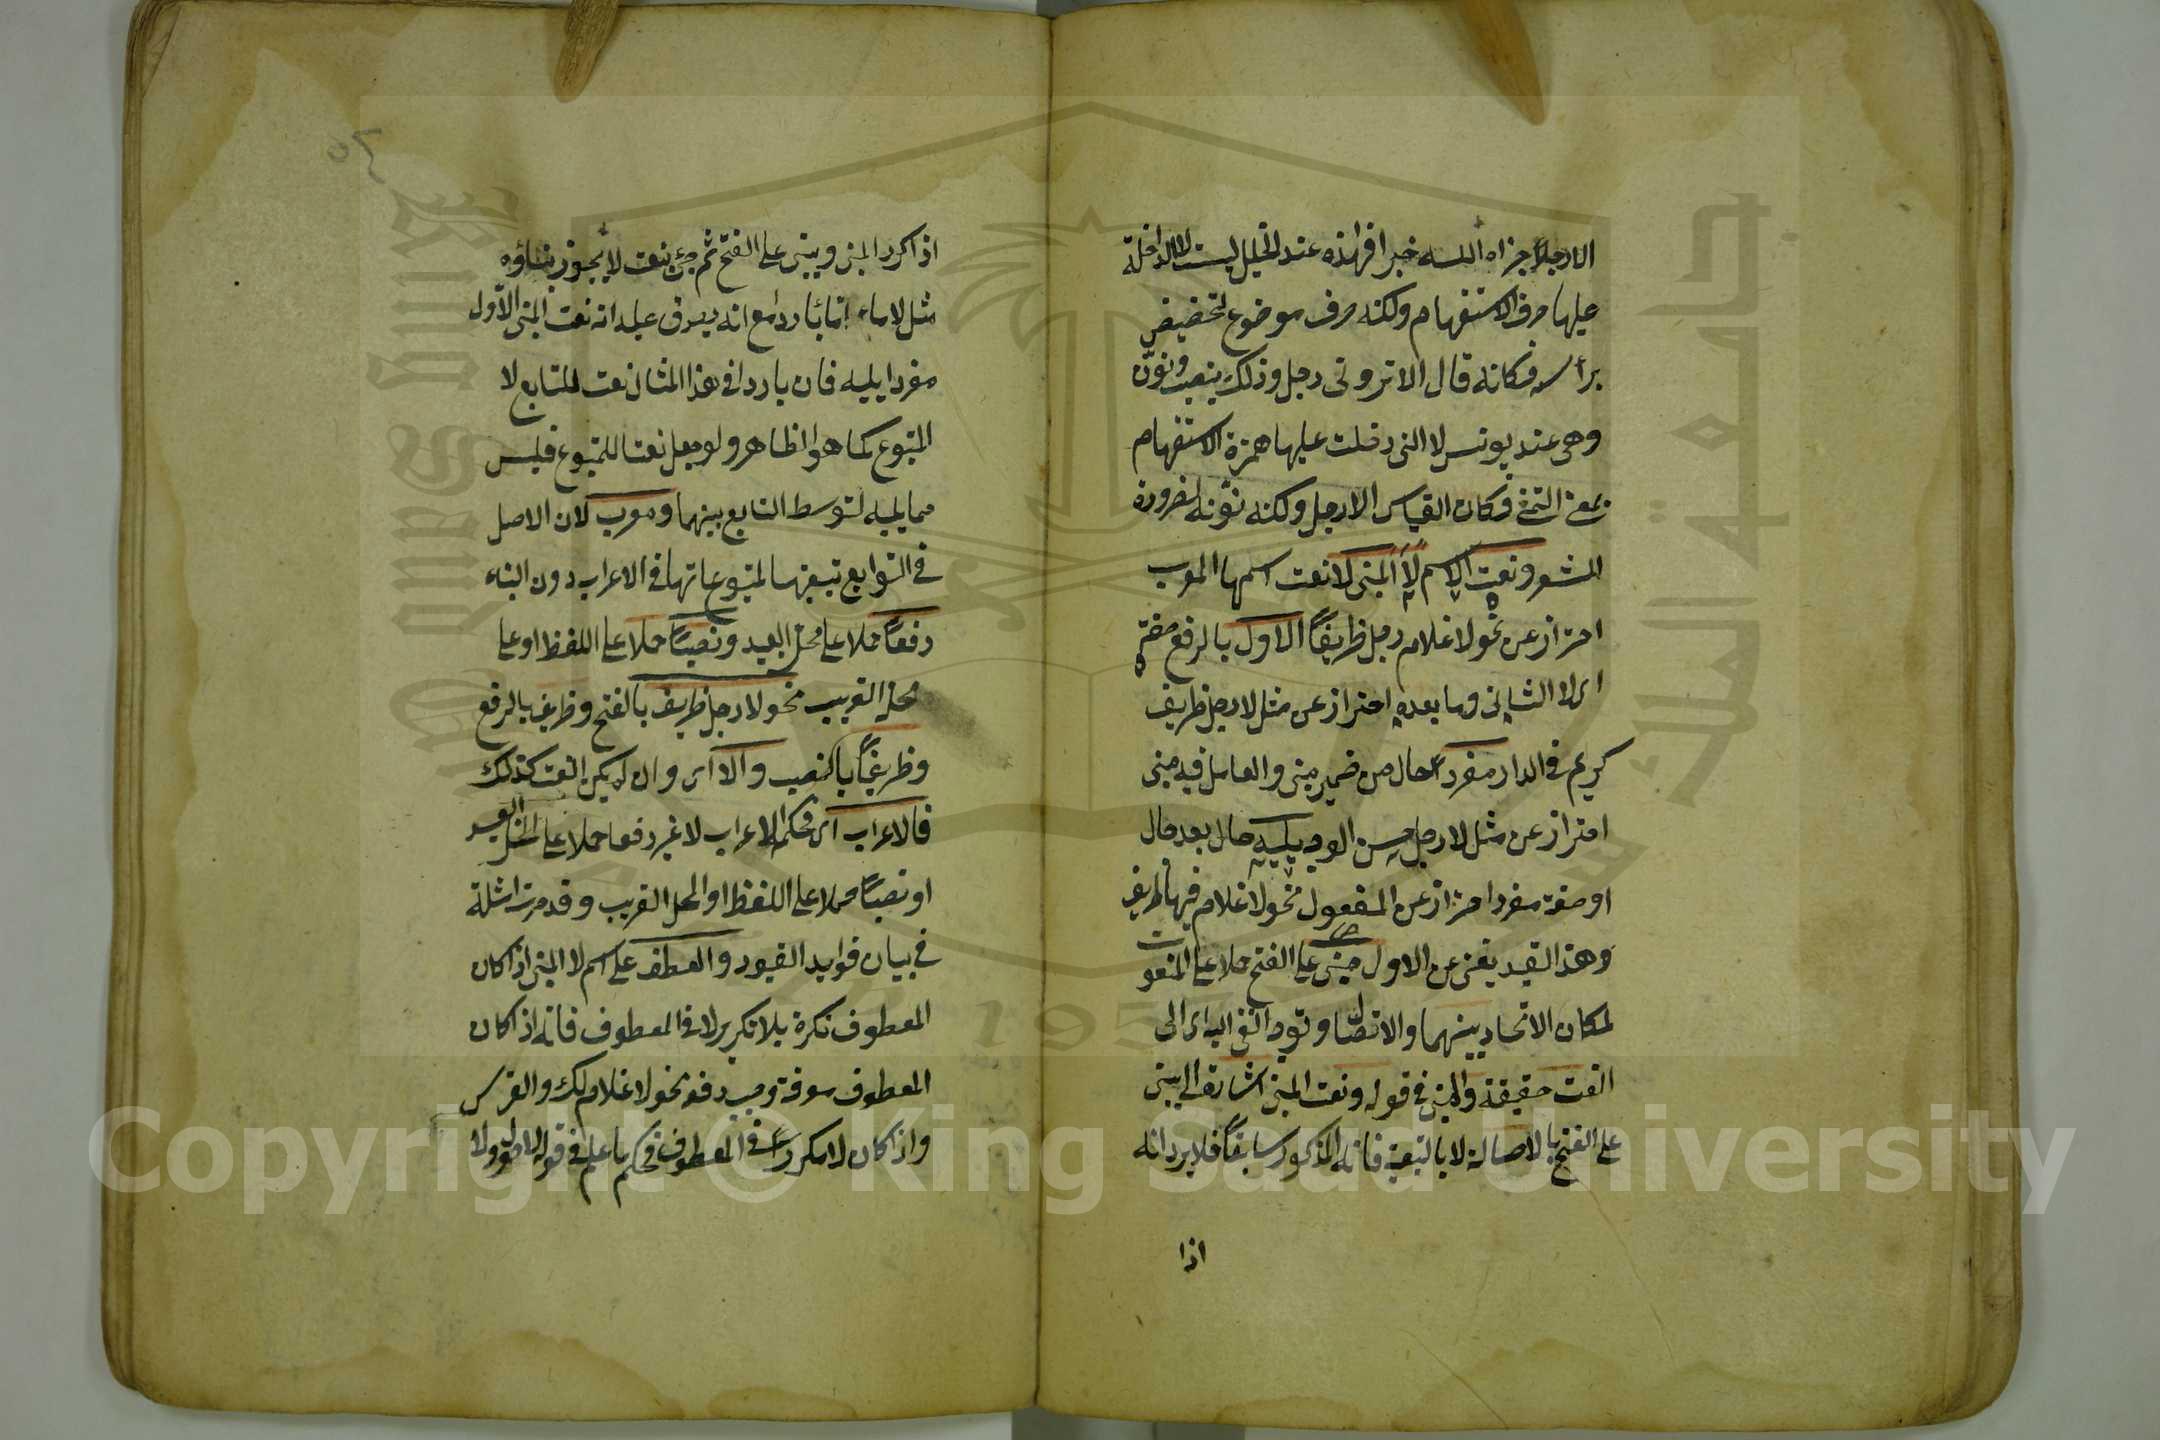 الا رجلا جزاه الله خيرا فهذه عند الخليل ليست لا الداخلة
عليها حرف الاستفهام ولكنه حرف موضوع لتخصيص
برأسه فكانه قال الا تروني رجلا وذلك ينصب ونون
وهى عند يونس لا التى دخلت عليها همزة الاستفهام
بمعنى التمنى فكان القياس الا رجل ولكنه نونه لضرورة
الشعر ونعت الاسم لا المبنى لا نعت اسمها المعرب
احتراز عن نحو لا غلام رجل ظريفاً الاول بالرفع صفته
اى لا الثانى وما بعده احتراز عن مثل لا رجل ظريف
كريم فى الدار مفرداً حال من ضمير مبنى والعامل فيه مبنى
احتراز عن مثل لا رجل حسن الوجه يليه حال بعد حال
او صفة مفردا احتراز عن المفعول نحو لا غلام فيها ظريف
وهذا القيد يغنى عن الاول مبنى على الفتح حملا على المنعوت
لمكان الاتحاد بينهما والاتصال وتوجه النفى اليه اى الى
النعت حقيقة والمبنى فى قوله ونعت المبنى اشارة الى يبنى
على الفتح بالاصالة لا بالتبعية فانه المذكور سابقاً فلا يرد انه
اذا
اذا كرر المبنى ويبنى على الفتح ثم جئ بنعت لا يجوز بناؤه
مثل لا ماء ماء باردا مع انه يصدق عليه انه نعت المبنى الاول
مفردا يليه فان باردا فى هذا المثال نعت للتابع لا
المتبوع كما هو الظاهر ولو جعل نعتا للمتبوع فليس
مما يليه لتوسط التابع بينهما ومعرب لان الاصل
فى التوابع تبعيتها لمتبوعاتها فى الاعراب دون البناء
رفعاً حملا على محل البعيد ونصباً حملا على اللفظ او على
محل القريب نحو لا رجل ظريف بالفتح وظريف بالرفع
وظريفاً بالنصب والا اى وان لم يكن النعت كذلك
فالاعراب اى فحكمه الاعراب لا غير رفعا حملا على المحل البعيد
او نصباً حملا على اللفظ او المحل القريب وقد مرت امثلة
فى بيان فوايد القيود والعطف على اسم لا المبنى اذا كان
المعطوف نكرة بلا تكرير لا فى المعطوف فانه اذا كان
المعطوف معرفة وجب رفعه نحو لا غلام لك والفرس
واذا كان لا مكررا فى المعطوف فحكمه ما علم فى قوله لا حول ولا
Copyright © King Saud University
1957